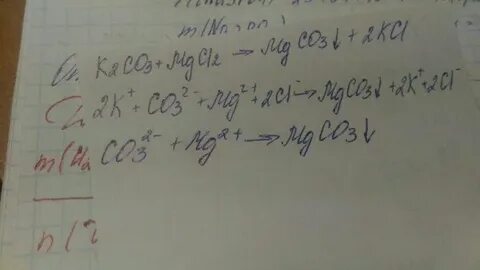 m(Na
K2CO3+MgCl2→MgCO3↓+2KCl
2K⁺+CO3²⁻+Mg²⁺+2Cl⁻→MgCO3↓+2K⁺+2Cl⁻
m(H2
CO3²⁻+Mg²⁺→MgCO3↓
n(